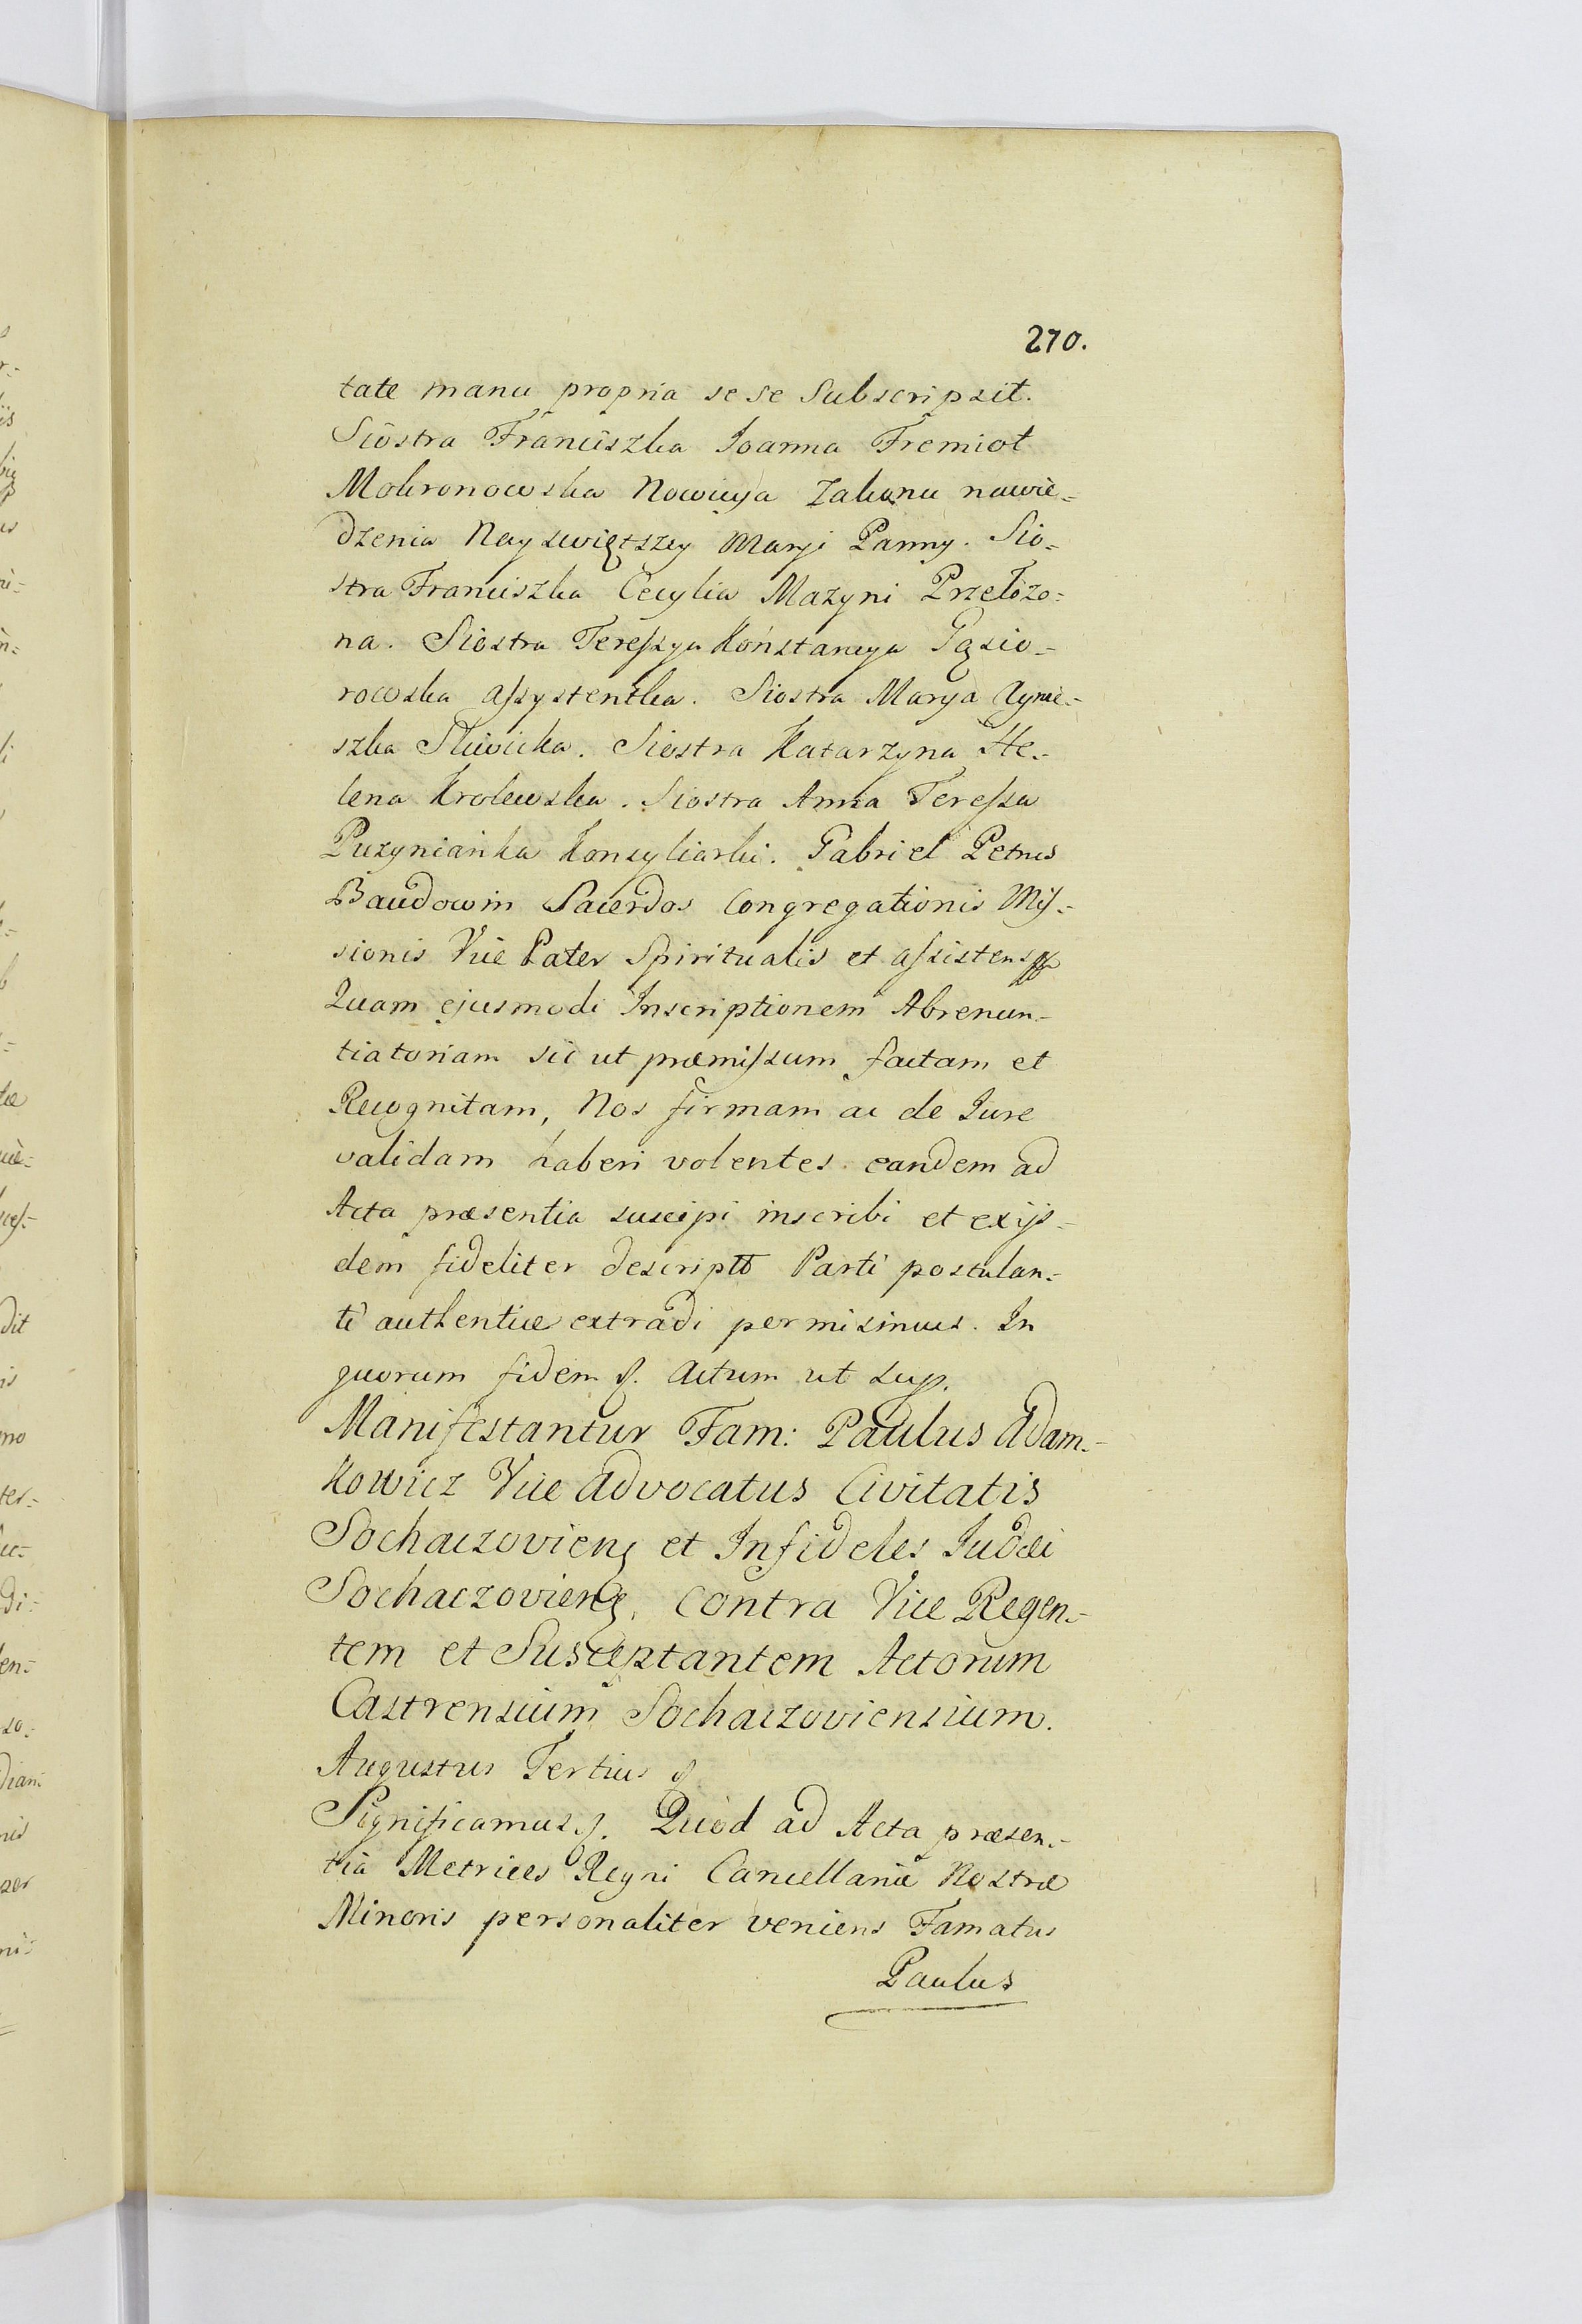 270.
tate manu propria sese Subscripsit.
Siostra Franciszka Joanna Fremiot
Mokronowska Nowicya Zakonu nawie=
dzenia Nayswiętszey Maryi Panny. Sio=
stra Franciszka Cecylia Mazyni Przełożo=
na. Siostra Teressya Konstancya Gąsio=
rowska Assystentka. Siostra Marya Agnie=
szka Sliwicka. Siostra Katarzyna He=
lena Krolewska. Siostra Anna Teressa
Puzynianka Konsyliarki. Gabriel Petrus
Baudowin Sacerdos Congregationis Mis=
sionis Vice Pater Spiritualis et assistens
Quam ejusmodi Inscriptionem Abrenun=
tiatoriam sic ut præmissum factam et
Recognitam, Nos firmam ac de Jure
validam haberi volentes eandem ad
Acta præsentia suscipi inscribi et exijs=
dem fideliter descriptt Parti postulan=
ti authentice extradi permisimus. In
quorum fidem &. Actum ut sup.
Manifestantur Fam: Paulus Adam=
kowicz Vice Advocatus Civitatis
Sochaczoviens et Infideles Judæi
Sochaczoviens, contra Vice Regen=
tem et Susceptantem Actorum
Castrensium Sochaczoviensium.
Augustus Tertius &
Significamus &. Quod ad Acta præsen=
tia Metrices Regni Cancellariæ Nostræ
Minoris personaliter veniens Famatus
Paulus